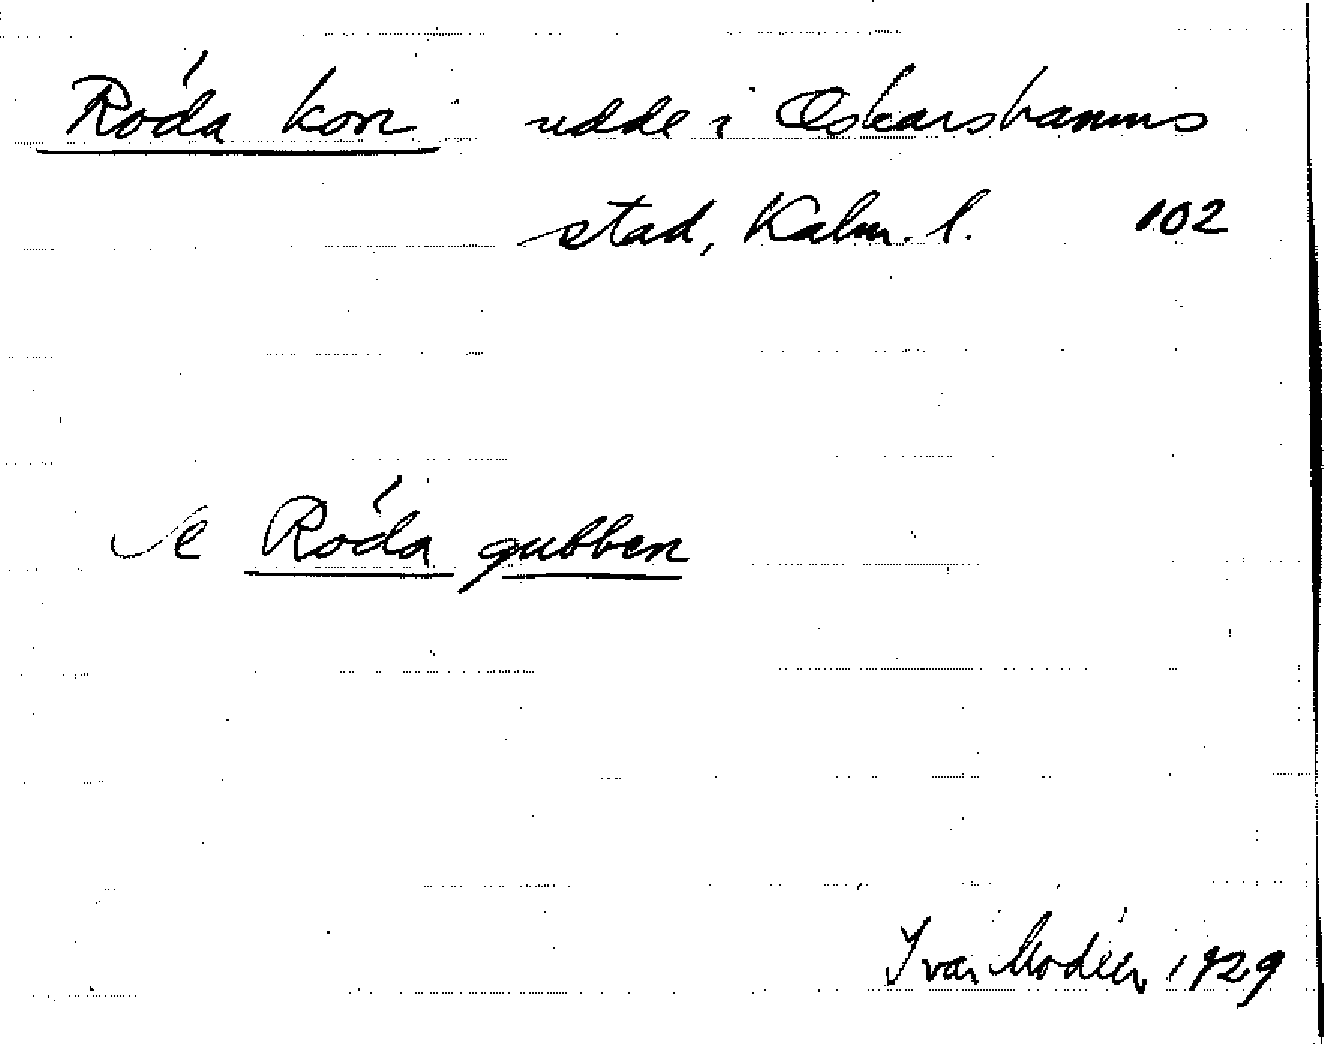 Röda kon udde i Oskarshamns
stad, Kalm. l. 102
Se Röda gubben
Ivar Modéer 1929